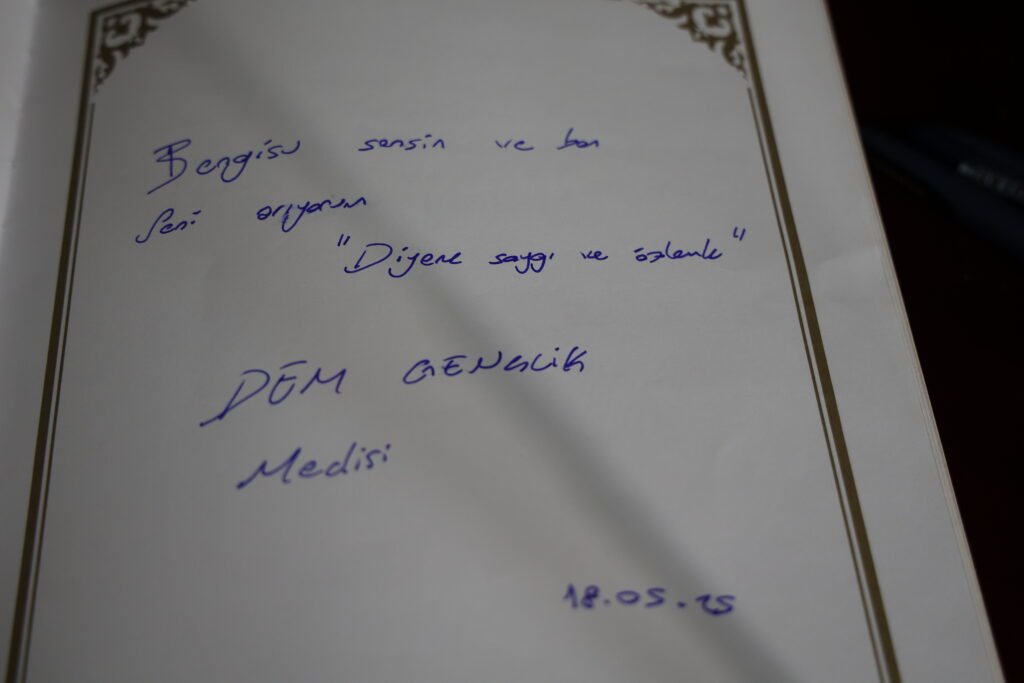 Bengisu sensin ve ben
Seni arıyorum
"Dijene saygı ve özlemle"
DEM GENÇLİK
Meclisi
18.05.25